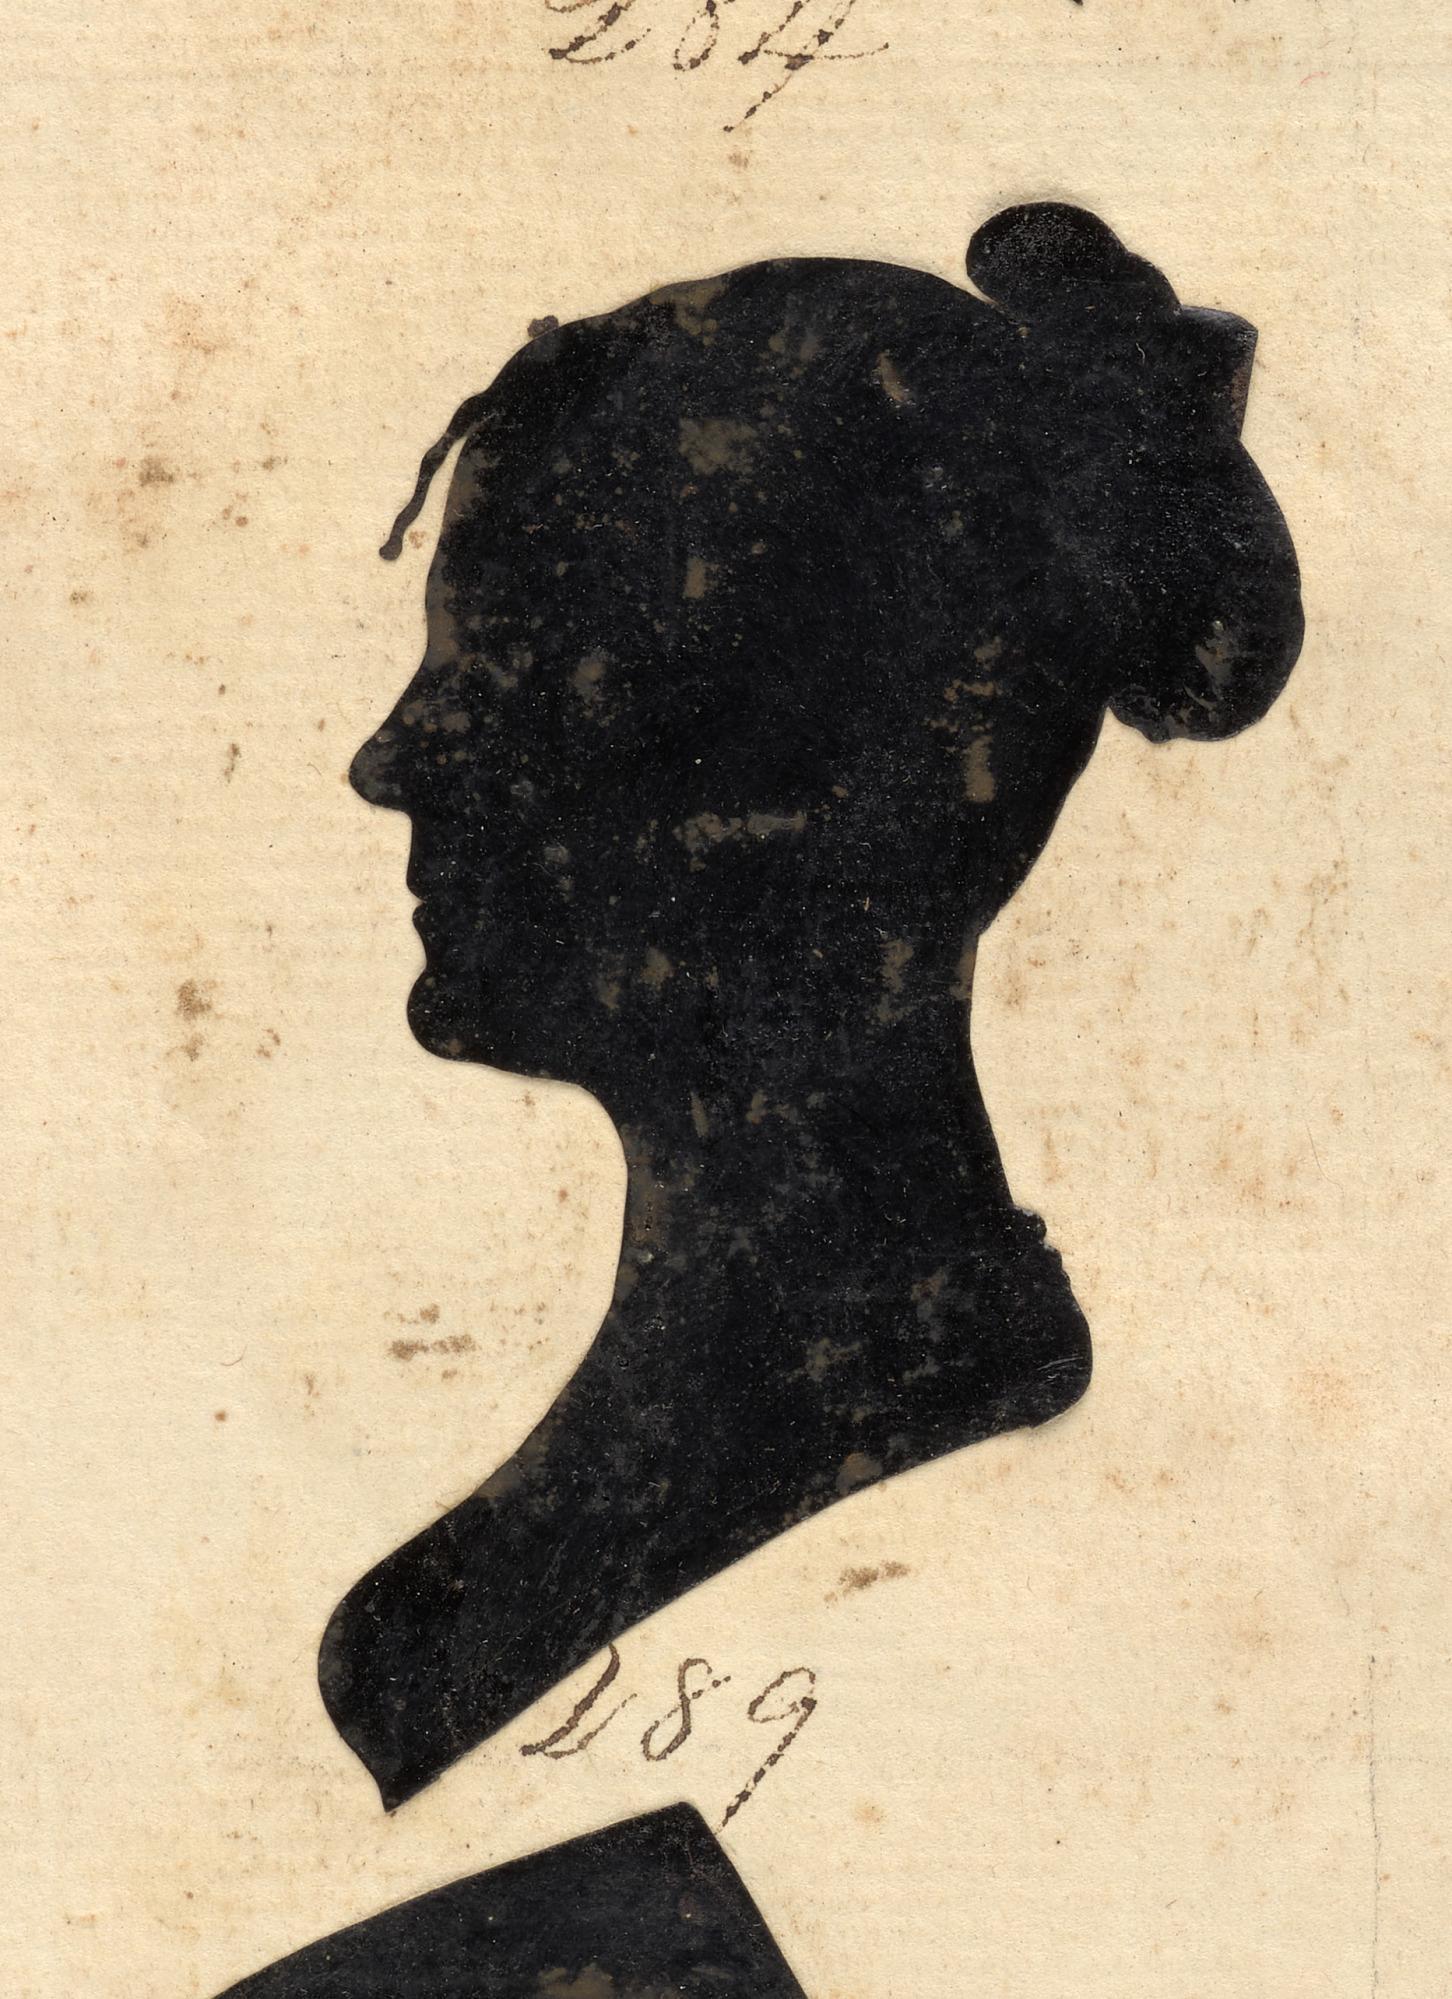 284
289